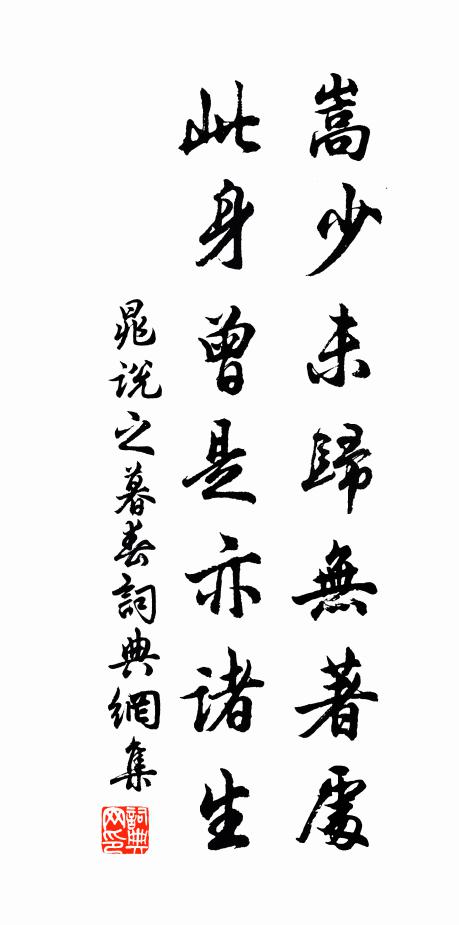 嵩少未歸無著處
此身曾是亦諸生
晁說之暮春詞典網集
詞典网印